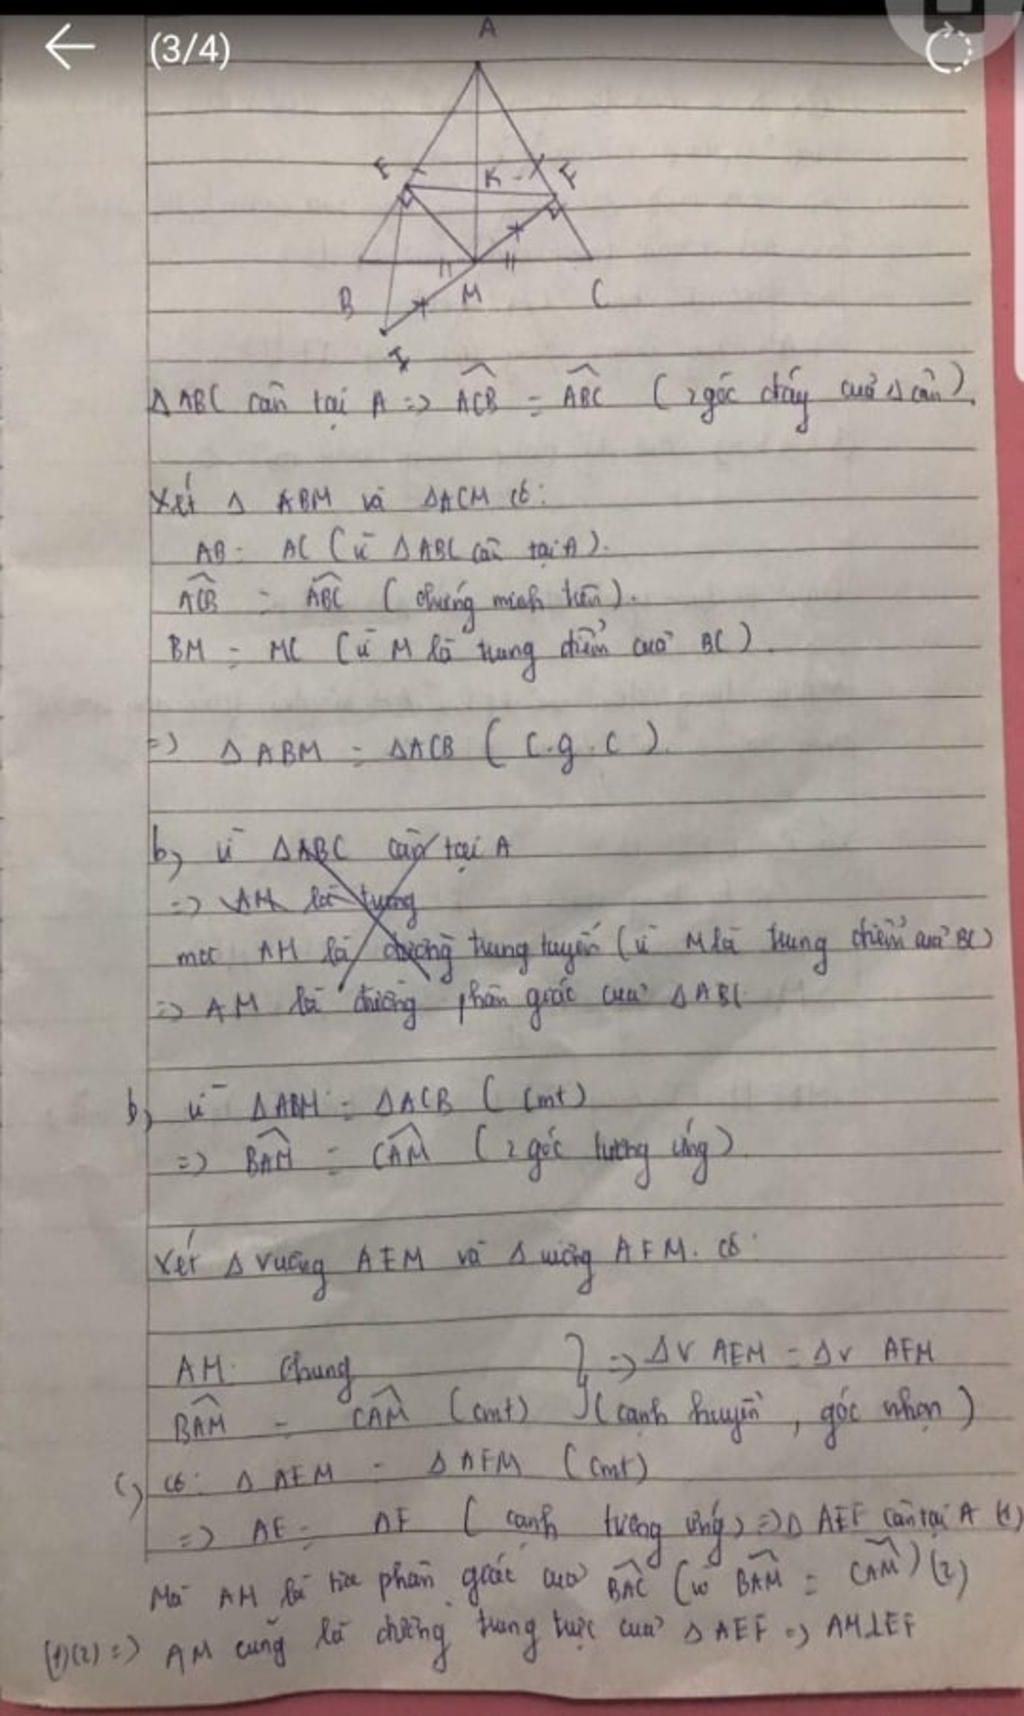 (3/4)
A
E
K
F
B
M
C
I
Δ ABC cân tại A => ACB = ABC (2 góc đáy của Δ cân).
Xét Δ ABM và ΔACM có:
AB = AC (vì ΔABC cân tại A).
ACB = ABC (chứng minh trên).
BM = MC (vì M là trung điểm của BC).
=> Δ ABM = ΔACB (c.g.c).
b, vì ΔABC cân tại A
=> AM là trung
mà AM là đường trung tuyến (vì M là trung điểm của BC)
=> AM là đường phân giác của ΔABC
b, vì ΔABM = ΔACB (cmt)
=> BAM = CAM (2 góc tương ứng)
Xét Δ vuông AEM và Δ vuông AFM. có:
AM chung } => ΔV AEM = ΔV AFM
BAM = CAM (cmt) (cạnh huyền, góc nhọn)
c, có: Δ AEM = Δ AFM (cmt)
=> AE = AF (cạnh tương ứng) => Δ AEF cân tại A (1)
Mà AM là tia phân giác của BAC (vì BAM = CAM) (2)
(1)(2) => AM cũng là đường trung trực của Δ AEF => AM⊥EF